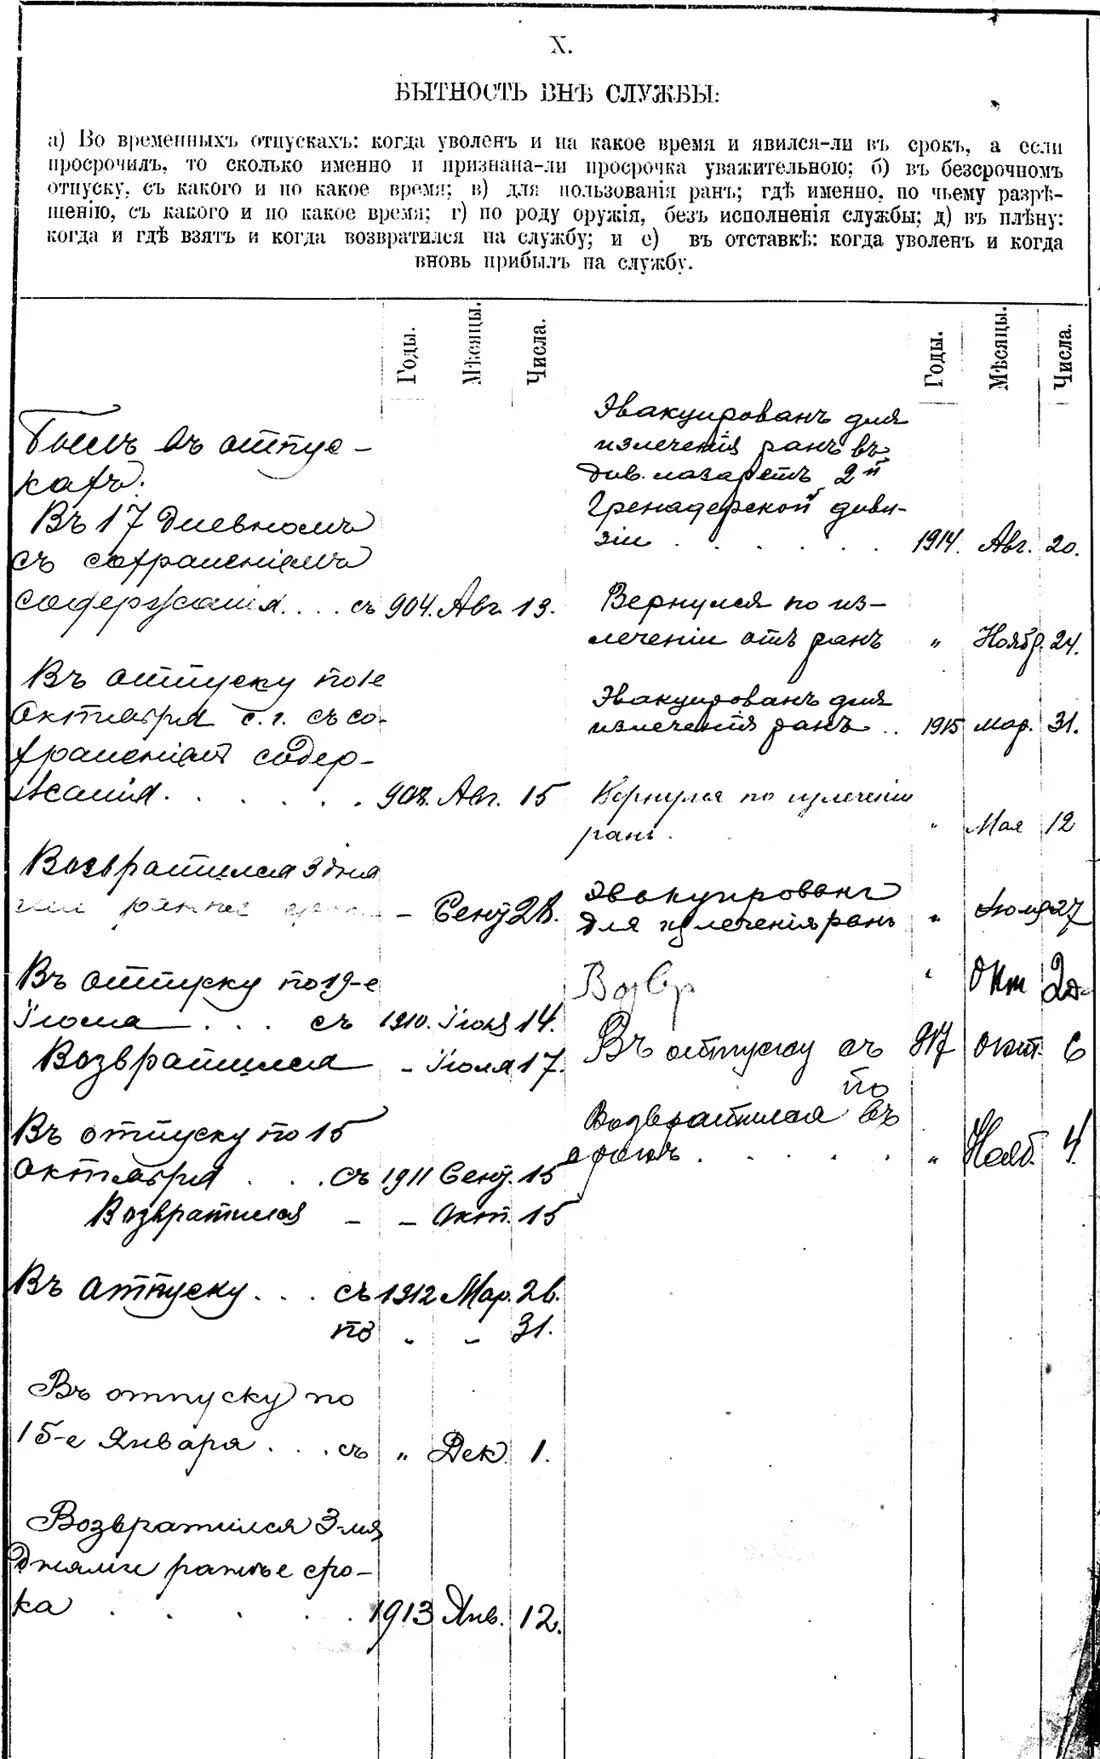 X.
БЫТНОСТЬ ВНѢ СЛУЖБЫ:
а) Во временныхъ отпускахъ: когда уволенъ и на какое время и явился-ли въ срокъ, а если
просрочилъ, то сколько именно и признана-ли просрочка уважительною; б) въ безсрочномъ
отпуску, съ какого и по какое время; в) для пользованія ранъ; гдѣ именно, по чьему разрѣ-
шенію, съ какого и по какое время; г) по роду оружія, безъ исполненія службы; д) въ плѣну:
когда и гдѣ взятъ и когда возвратился на службу; и е) въ отставкѣ: когда уволенъ и когда
вновь прибылъ на службу.
Годы. Мѣсяцы. Числа.
Былъ въ отпус-
кахъ:
Въ 17 дневномъ
съ сохраненіемъ
содержанія.... съ 904. Авг. 13.
Въ отпуску по 1е
Октября с. г. съ со-
храненіемъ содер-
жанія. . . . . . 908. Авг. 15
Возвратился 3 дня
ранѣе - Сент. 28.
Въ отпуску по 19-е
Іюля . . . съ 1910. Іюля 14.
Возвратился - Іюля 17.
Въ отпуску по 15
Октября . . . съ 1911 Сент. 15
Возвратился - - Окт. 15
Въ отпуску . . . съ 1912 Мар. 26.
по „ „ 31.
Въ отпуску по
15-е Января . . . съ „ Дек. 1.
Возвратился 3-мя
днями ранѣе сро-
ка . . . . . 1913 Янв. 12.
Годы. Мѣсяцы. Числа.
Эвакуированъ для
излеченія ранъ въ
див. лазаретъ 2й
Гренадерской диви-
зіи . . . . . 1914. Авг. 20.
Вернулся по из-
леченіи отъ ранъ „ Ноябр. 24.
Эвакуированъ для
излеченія ранъ .. 1915 Мар. 31.
Вернулся по излеченіи
ранъ. „ Мая 12
Эвакуированъ
для излеченія ранъ „ Іюля 27
Возвр „ Окт
Въ отпуску съ 917 Окт. 6
по
Возвратился въ
срокъ . . . . . „ Нояб. 4.